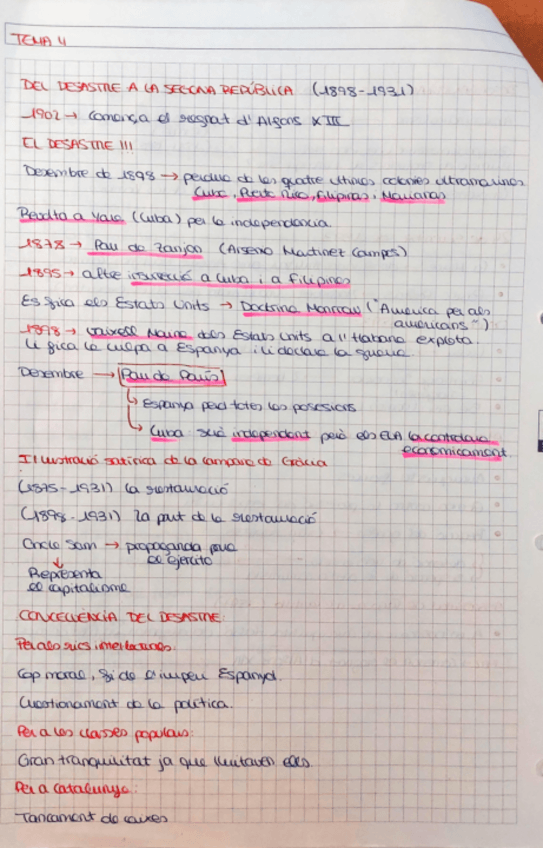 TEMA 4
DEL DESASTRE A LA SEGONA REPÚBLICA (1898-1931)
1902 → Comença el regnat d'Alfons XIII
EL DESASTRE !!!
Desembre de 1898 → perdua de les quatre ultimes colonies ultramarines
Cuba, Puerto Rico, Filipinas, Marianas
Revolta a Yara (Cuba) per la independencia.
1878 → Pau de Zanjon (Arsenio Martinez Campos)
1895 → altre insurrecció a Cuba i a Filipines
Es fica els Estats Units → Doctrina Monroe ("America per als
americans")
1898 → Vaixell Maine dels Estats Units a l'Habana explota.
Li fica la culpa a Espanya i li declara la guerra.
Desembre → Pau de París
Espanya perd totes les posesions
Cuba sera independent però els EUA la controlava
economicament.
Il·lustració satírica de la campana de Gràcia
(1875-1931) La restauració
(1898-1931) 2a part de la restauració
Oncle Sam → propaganda para
el ejercito
Representa
el capitalisme
CONSEQÜENCIA DEL DESASTRE:
Per als rics intel·lectuals:
Cop moral, fi de l'imperi Espanyol.
Cuestionament de la política.
Per a les classes populars:
Gran tranquilitat ja que lluitaven ells
Per a Catalunya:
Tancament de caixes